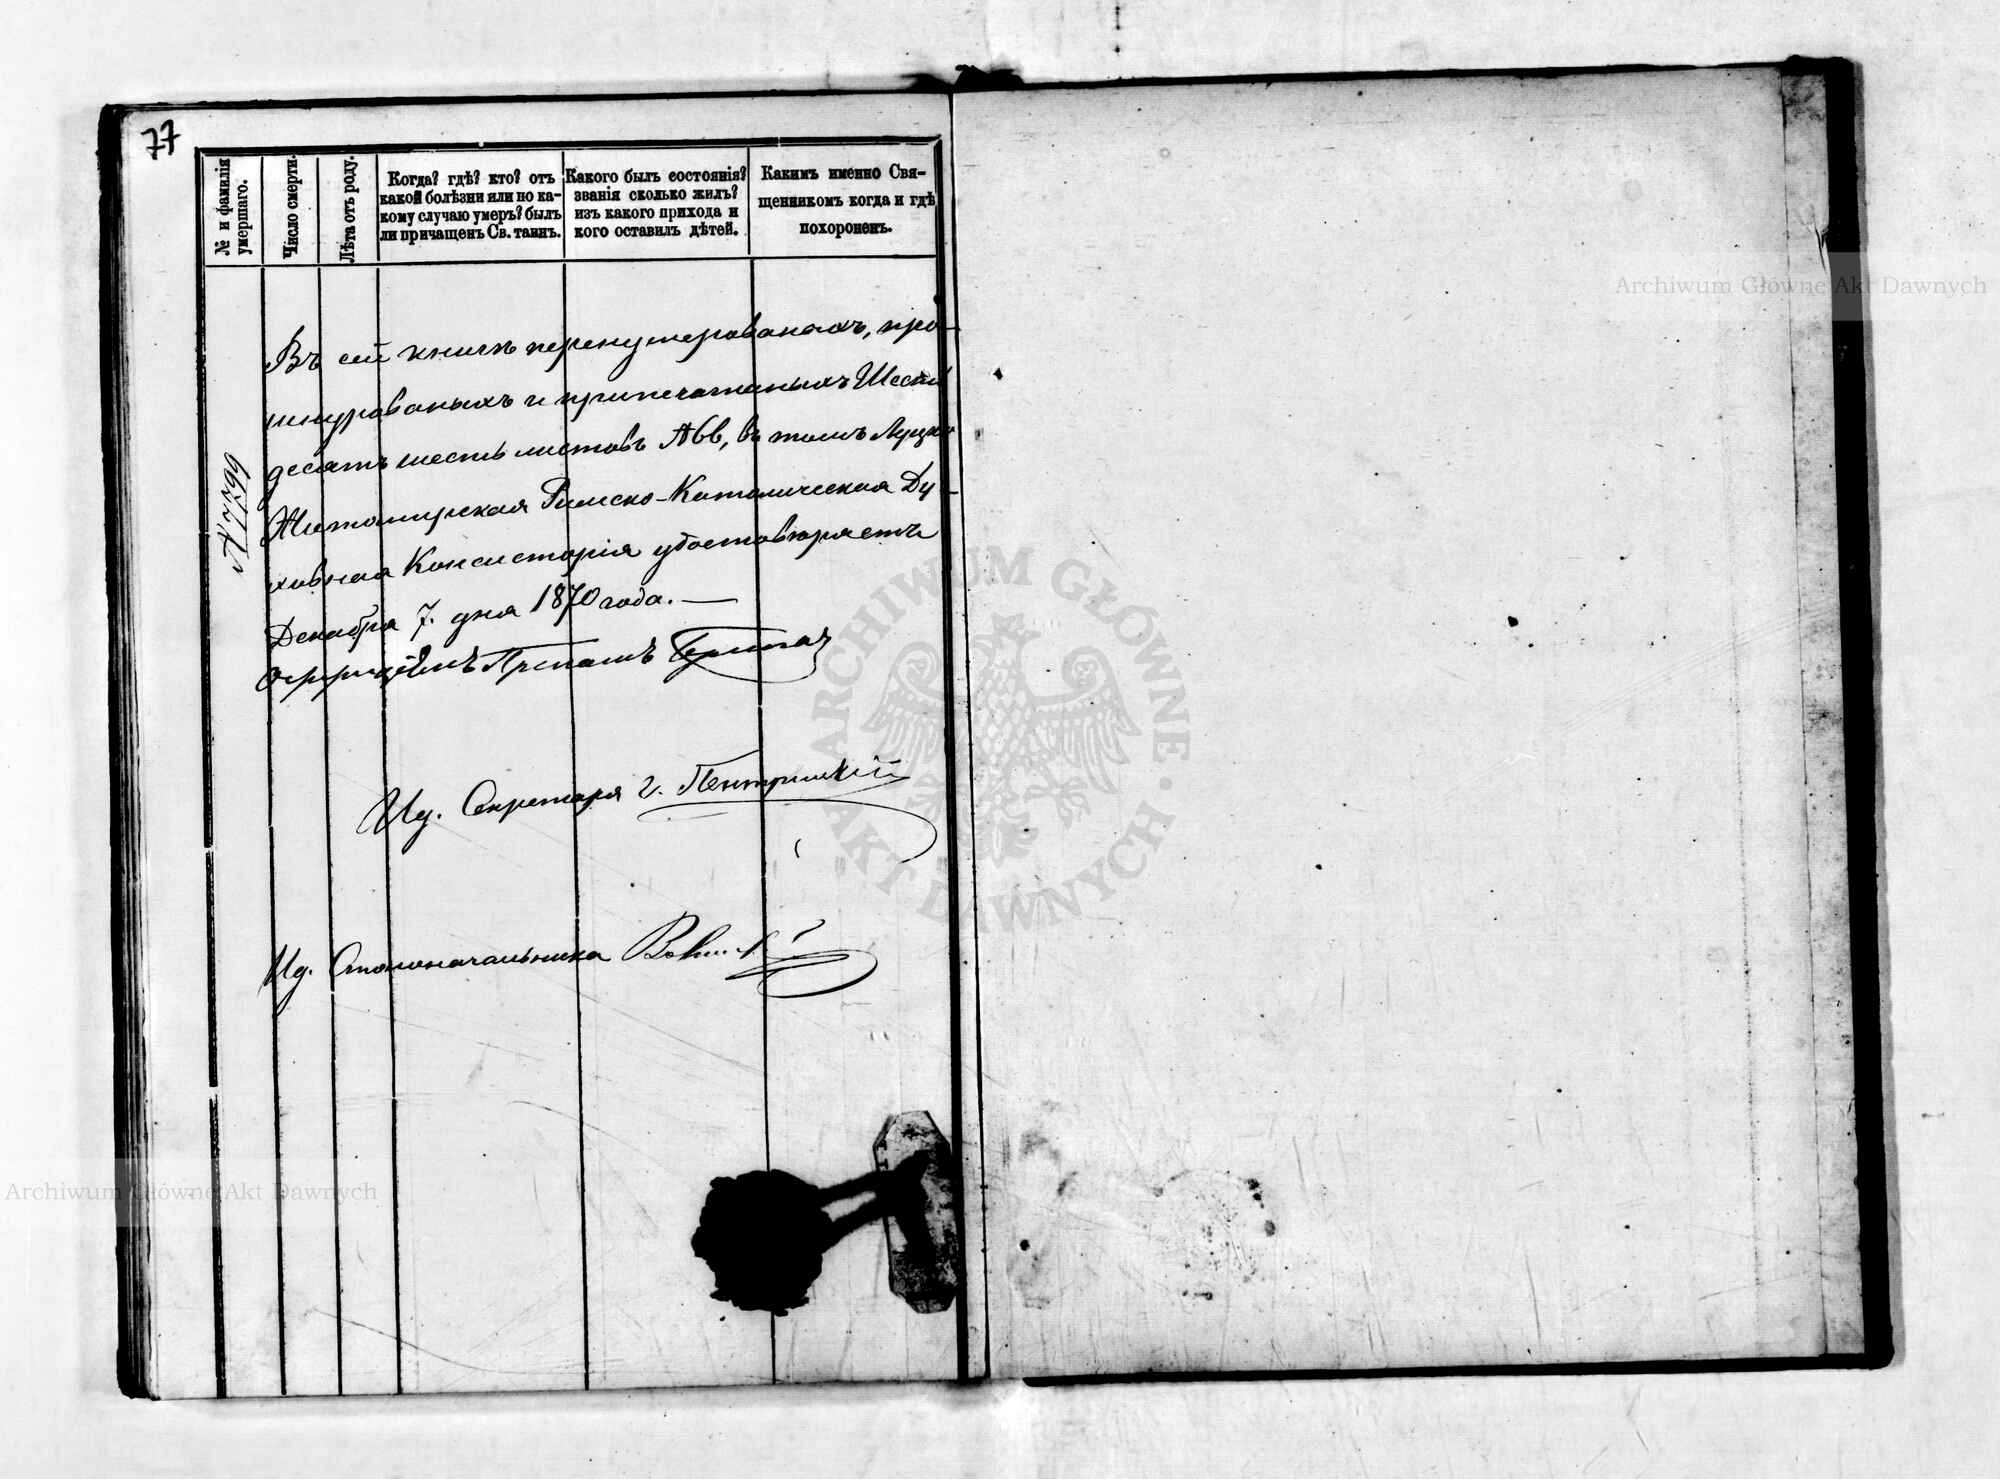 77
№ и фамилія
умершаго.
Число смерти.
Лѣта отъ роду.
Когда? гдѣ? кто? отъ
какой болѣзни или по ка-
кому случаю умеръ? былъ
ли причащенъ Св. таинъ.
Какого былъ состоянія?
званія сколько жилъ?
изъ какого прихода и
кого оставилъ дѣтей.
Каким именно Свя-
щенникомъ когда и гдѣ
похороненъ.
Въ сей книгѣ перенумерованныхъ, про-
шнурованыхъ и припечатаныхъ Шесть
десятъ шесть листовъ /66/, въ томъ Луцко
Житомирская Римско-Католическая Ду-
ховная Консисторія удостовѣряетъ
Декабря 7. дня 1870 года.
Оффиціалъ Прелатъ
Ид. Секретаря
Ид. Столоначальника
Archiwum Główne Akt Dawnych
Archiwum Główne Akt Dawnych
ARCHIWUM GŁÓWNE · AKT DAWNYCH ·